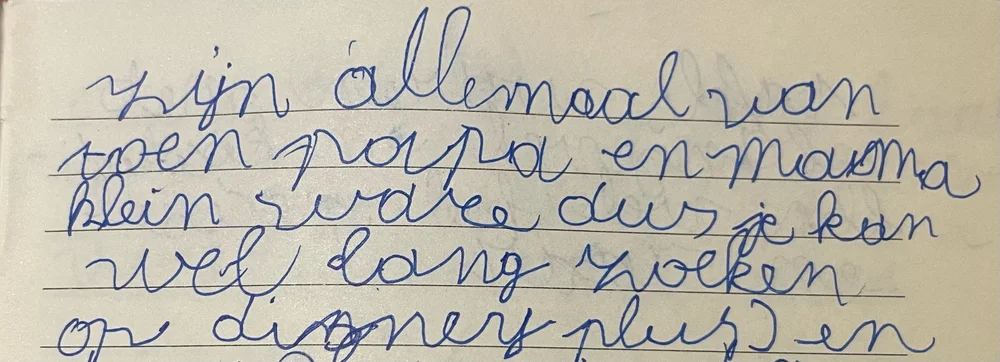 zijn allemaal van
toen papa en mama
klein ware dus je kan
wel lang zoeken
op disney plus) en